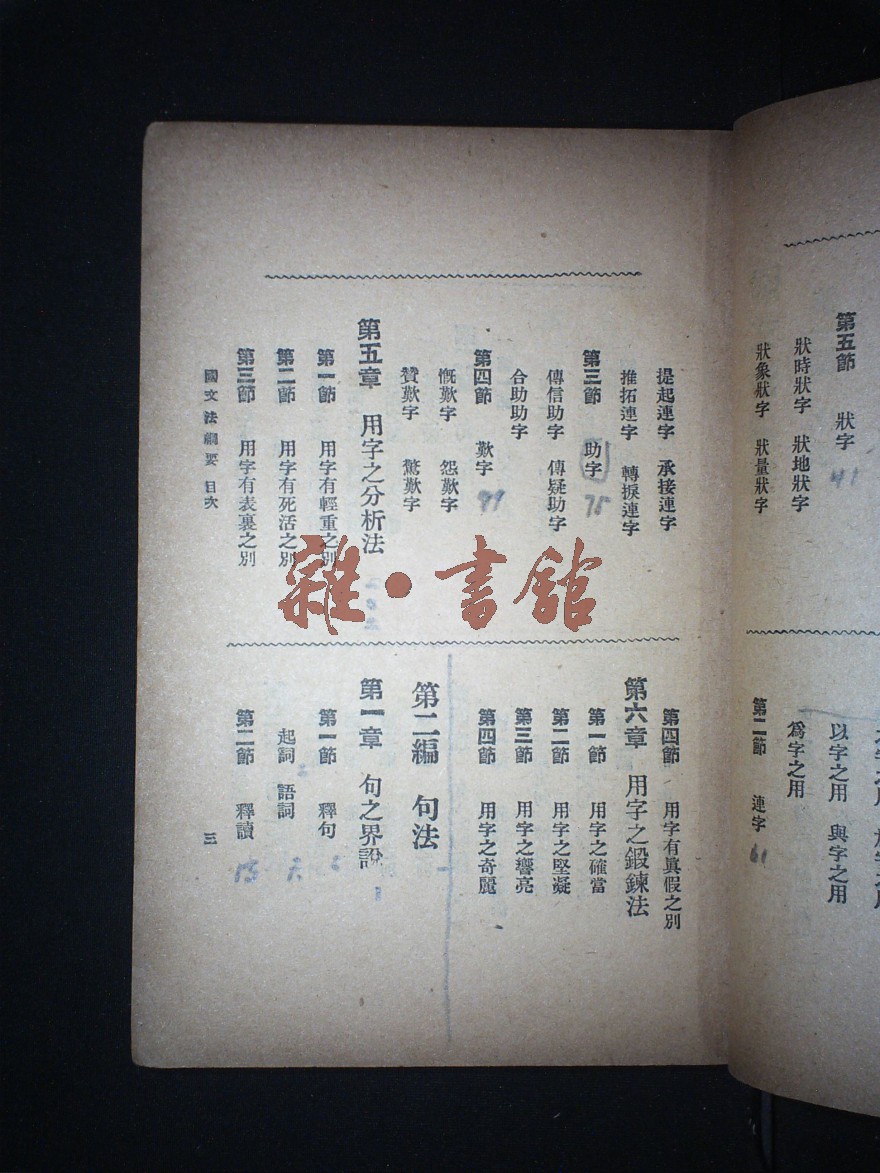 第五節 狀字 41
狀時狀字 狀地狀字
狀象狀字 狀量狀字
以字之用 與字之用
爲字之用
第二節 連字 61
提起連字 承接連字
推拓連字 轉捩連字
第三節 助字 75
傳信助字 傳疑助字
合助助字
第四節 歎字 99
慨歎字 怨歎字
贊歎字 驚歎字
第五章 用字之分析法
第一節 用字有輕重之別
第二節 用字有死活之別
第三節 用字有表裏之別
第四節 用字有眞假之別
第六章 用字之鍛鍊法
第一節 用字之確當
第二節 用字之堅凝
第三節 用字之響亮
第四節 用字之奇麗
第二編 句法
第一章 句之界說
第一節 釋句
起詞 語詞
第二節 釋讀
國文法綱要 目次
三
雜·書館